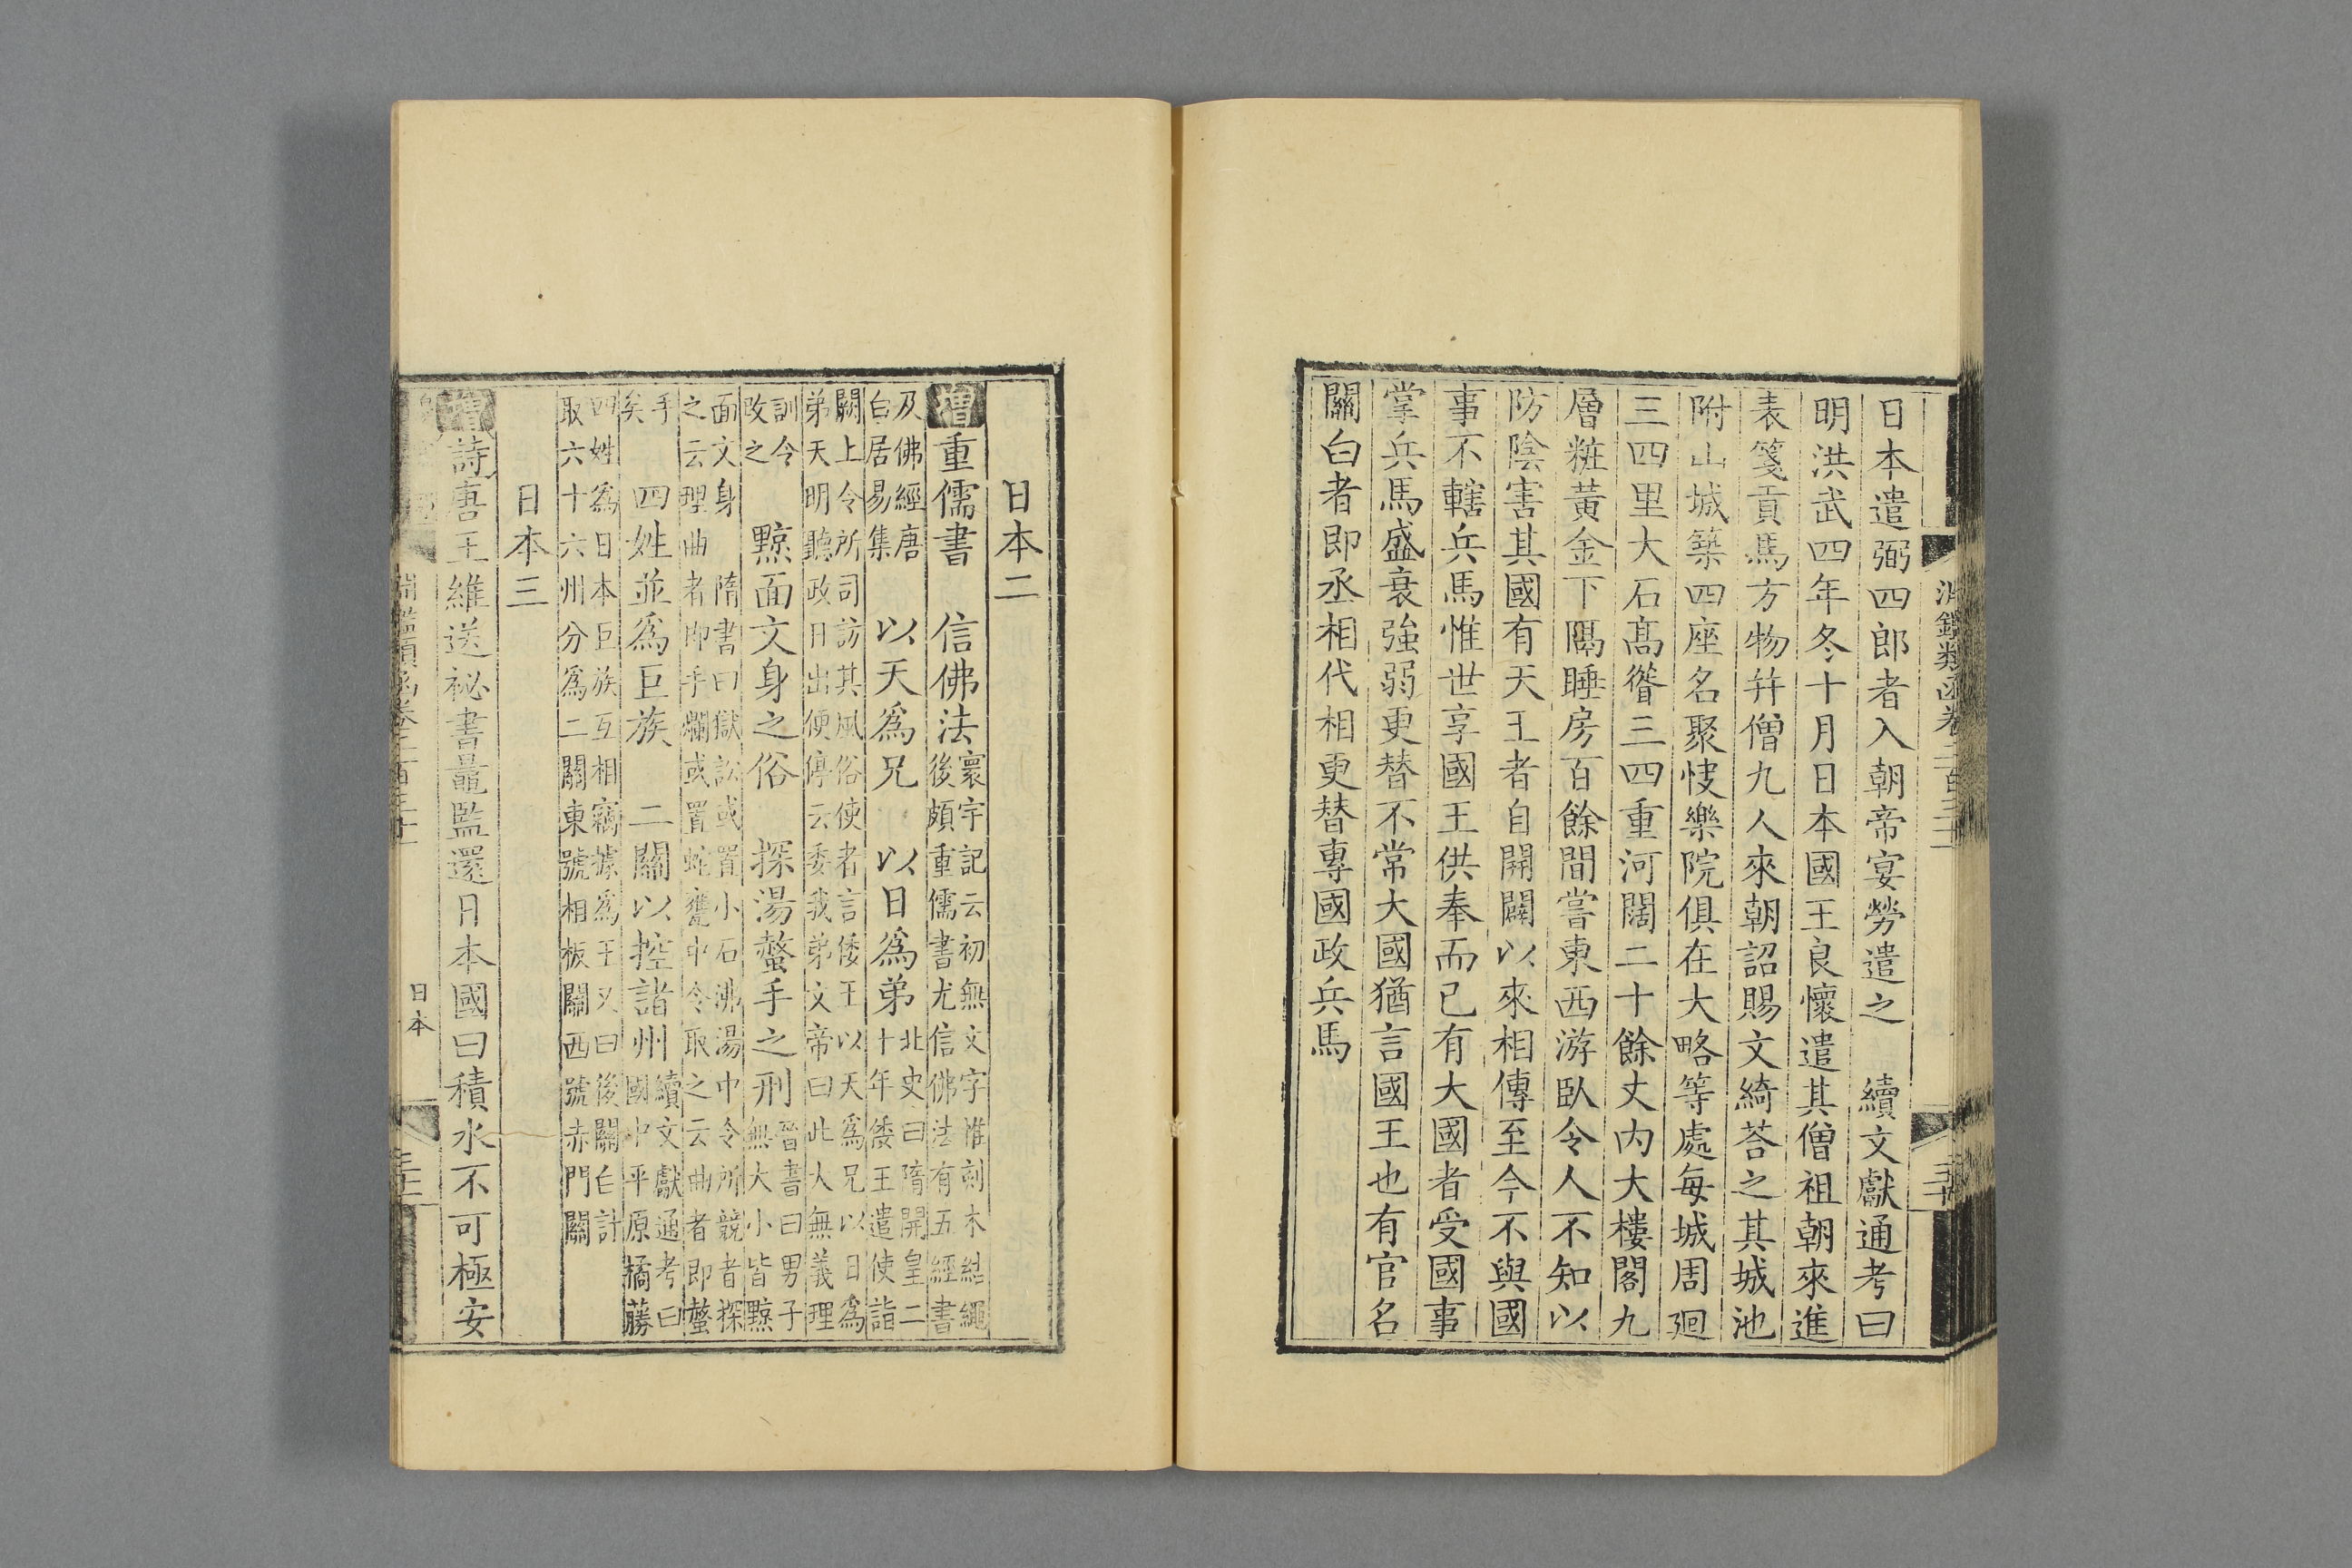 日本遣弼四郎者入朝帝宴勞遣之　續文獻通考曰
明洪武四年冬十月日本國王良懷遣其僧祖朝來進
表箋貢馬方物幷僧九人來朝詔賜文綺荅之其城池
附山城築四座名聚快樂院俱在大略等處每城周廻
三四里大石髙聳三四重河闊二十餘丈内大樓閣九
層粧黃金下隔睡房百餘間嘗東西游臥令人不知以
防陰害其國有天王者自開闢以來相傳至今不與國
事不轄兵馬惟世享國王供奉而已有大國者受國事
掌兵馬盛衰強弱更替不常大國猶言國王也有官名
關白者即丞相代相更替專國政兵馬
日本二
增重儒書　信佛法寰宇記云初無文字惟刻木結繩
後頗重儒書尤信佛法有五經書
及佛經唐
白居易集　以天爲兄　以日爲弟北史曰隋開皇二
十年倭王遣使詣
闕上令所司訪其風俗使者言倭王以天爲兄以日爲
弟天明聽政日出便停云委我弟文帝曰此大無義理
訓令
改之　黥面文身之俗　探湯螫手之刑晉書曰男子
無大小皆黥
面文身　隋書曰獄訟或置小石沸湯中令所競者探
之云理曲者即手爛或置蛇甕中令取之云曲者即螫
手
矣　四姓並爲巨族　二關以控諸州續文獻通考曰
國中平原橘藤
四姓爲日本巨族互相竊據爲王又曰後關白計
取六十六州分爲二關東號相板關西號赤門關
日本三
增詩唐王維送祕書鼂監還日本國曰積水不可極安
日本